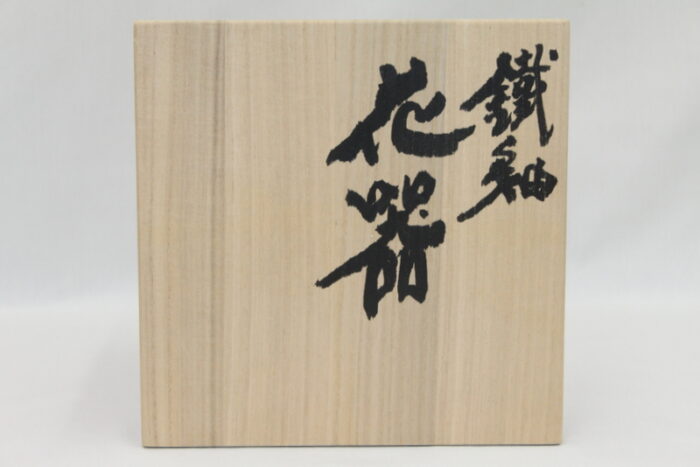 鐵釉
花器